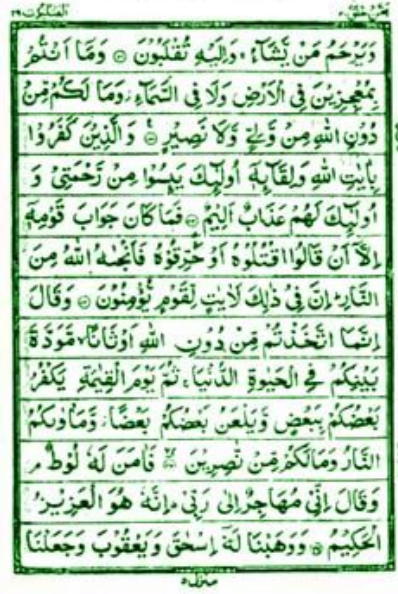 العنكبوت ٢٩
وَيَرْحَمُ مَنْ يَّشَآءُ ۚ وَاِلَيْهِ تُقْلَبُوْنَ ۝ وَمَآ اَنْتُمْ
بِمُعْجِزِيْنَ فِى الْاَرْضِ وَلَا فِى السَّمَآءِ ۡ وَمَا لَكُمْ مِّنْ
دُوْنِ اللّٰهِ مِنْ وَّلِىٍّ وَّلَا نَصِيْرٍ ۝ وَالَّذِيْنَ كَفَرُوْا
بِاٰيٰتِ اللّٰهِ وَلِقَآئِهٖٓ اُولٰٓئِكَ يَئِسُوْا مِنْ رَّحْمَتِىْ وَ
اُولٰٓئِكَ لَهُمْ عَذَابٌ اَلِيْمٌ ۝ فَمَا كَانَ جَوَابَ قَوْمِهٖٓ
اِلَّآ اَنْ قَالُوا اقْتُلُوْهُ اَوْ حَرِّقُوْهُ فَاَنْجٰىهُ اللّٰهُ مِنَ
النَّارِ ؕ اِنَّ فِىْ ذٰلِكَ لَاٰيٰتٍ لِّقَوْمٍ يُّؤْمِنُوْنَ ۝ وَقَالَ
اِنَّمَا اتَّخَذْتُمْ مِّنْ دُوْنِ اللّٰهِ اَوْثَانًا ۙ مَّوَدَّةَ
بَيْنِكُمْ فِى الْحَيٰوةِ الدُّنْيَا ۚ ثُمَّ يَوْمَ الْقِيٰمَةِ يَكْفُرُ
بَعْضُكُمْ بِبَعْضٍ وَّيَلْعَنُ بَعْضُكُمْ بَعْضًا ۡ وَّمَاْوٰىكُمُ
النَّارُ وَمَا لَكُمْ مِّنْ نّٰصِرِيْنَ ۝ فَاٰمَنَ لَهٗ لُوْطٌ ۘ
وَقَالَ اِنِّىْ مُهَاجِرٌ اِلٰى رَبِّىْ ؕ اِنَّهٗ هُوَ الْعَزِيْزُ
الْحَكِيْمُ ۝ وَوَهَبْنَا لَهٗٓ اِسْحٰقَ وَيَعْقُوْبَ وَجَعَلْنَا
منزل ٥